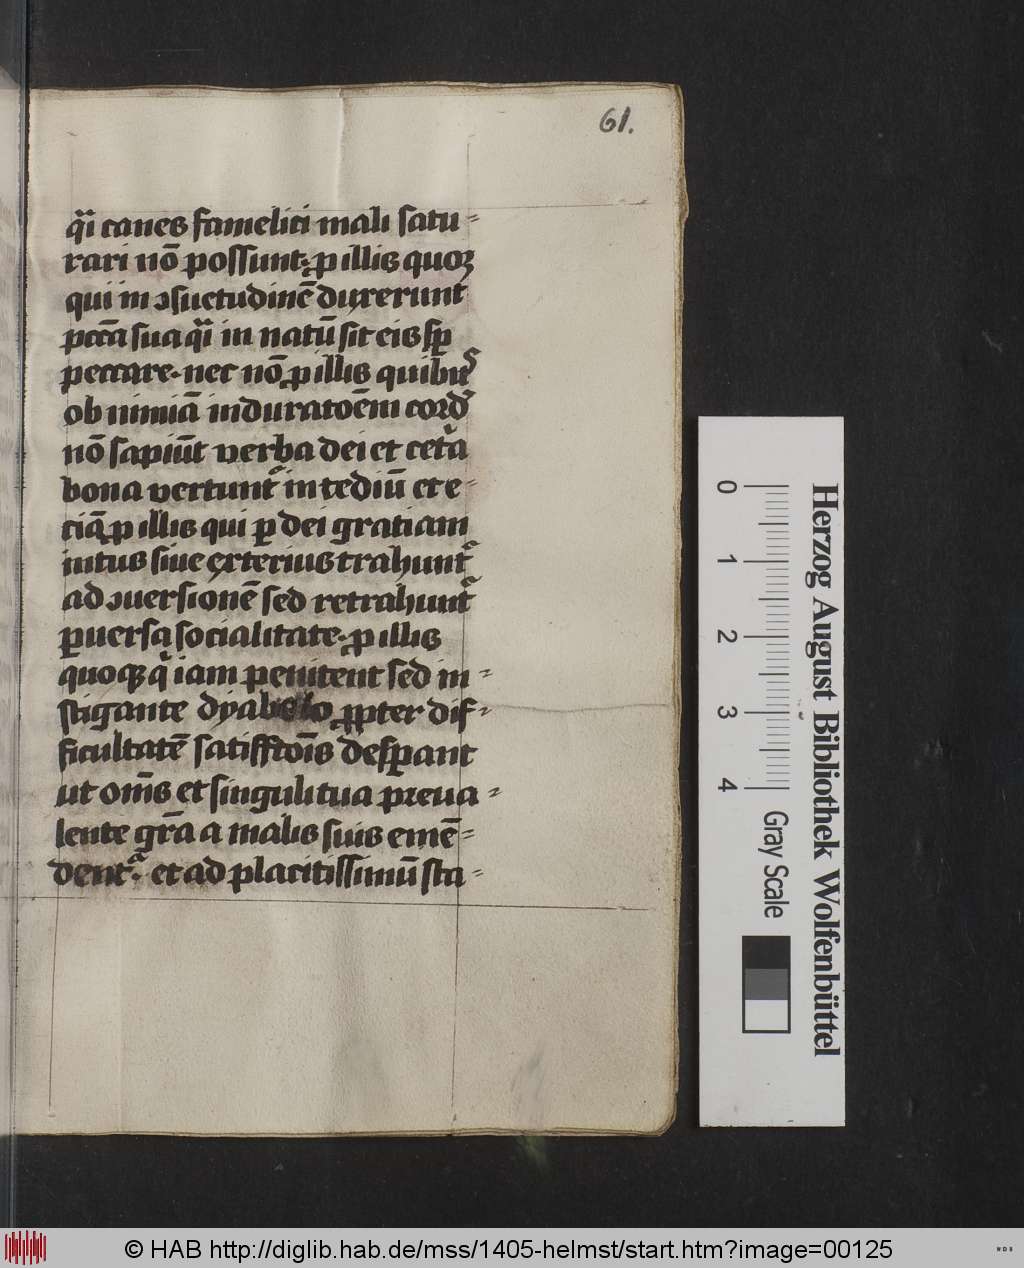 61.
qͣi canes famelici mali satu⸗
rari nō possunt· ꝓ illis quoꝝ
qui in ↄsuetudinē duxerunt
pccā sua qͣi in natū sit eis sꝑ
peccare· nec nō ꝓ illis quibꝰ
ob nimiā induratoēm cordꝭ
nō sapiūt verba dei et ceťa
bona vertuntᷣ in tediū et e⸗
ciā ꝓ illis qui ꝑ dei gratiam
intus siue exterius trahuntᷣ
ad ↄuersionē sed retrahuntᷣ
ꝑuersa socialitate· ꝓ illis
quoqꝫ qͥ iam penitent sed in⸗
stigante dyabolo ꝓpter dif⸗
ficultatē satisfftoīs desꝑant
ut om̄s et singuli tua preua⸗
lente gr̄a a malis suis emē⸗
dentᷣ· et ad placitissimū sta⸗
0 1 2 3 4
Gray Scale
Herzog August Bibliothek Wolfenbüttel
© HAB http://diglib.hab.de/mss/1405-helmst/start.htm?image=00125